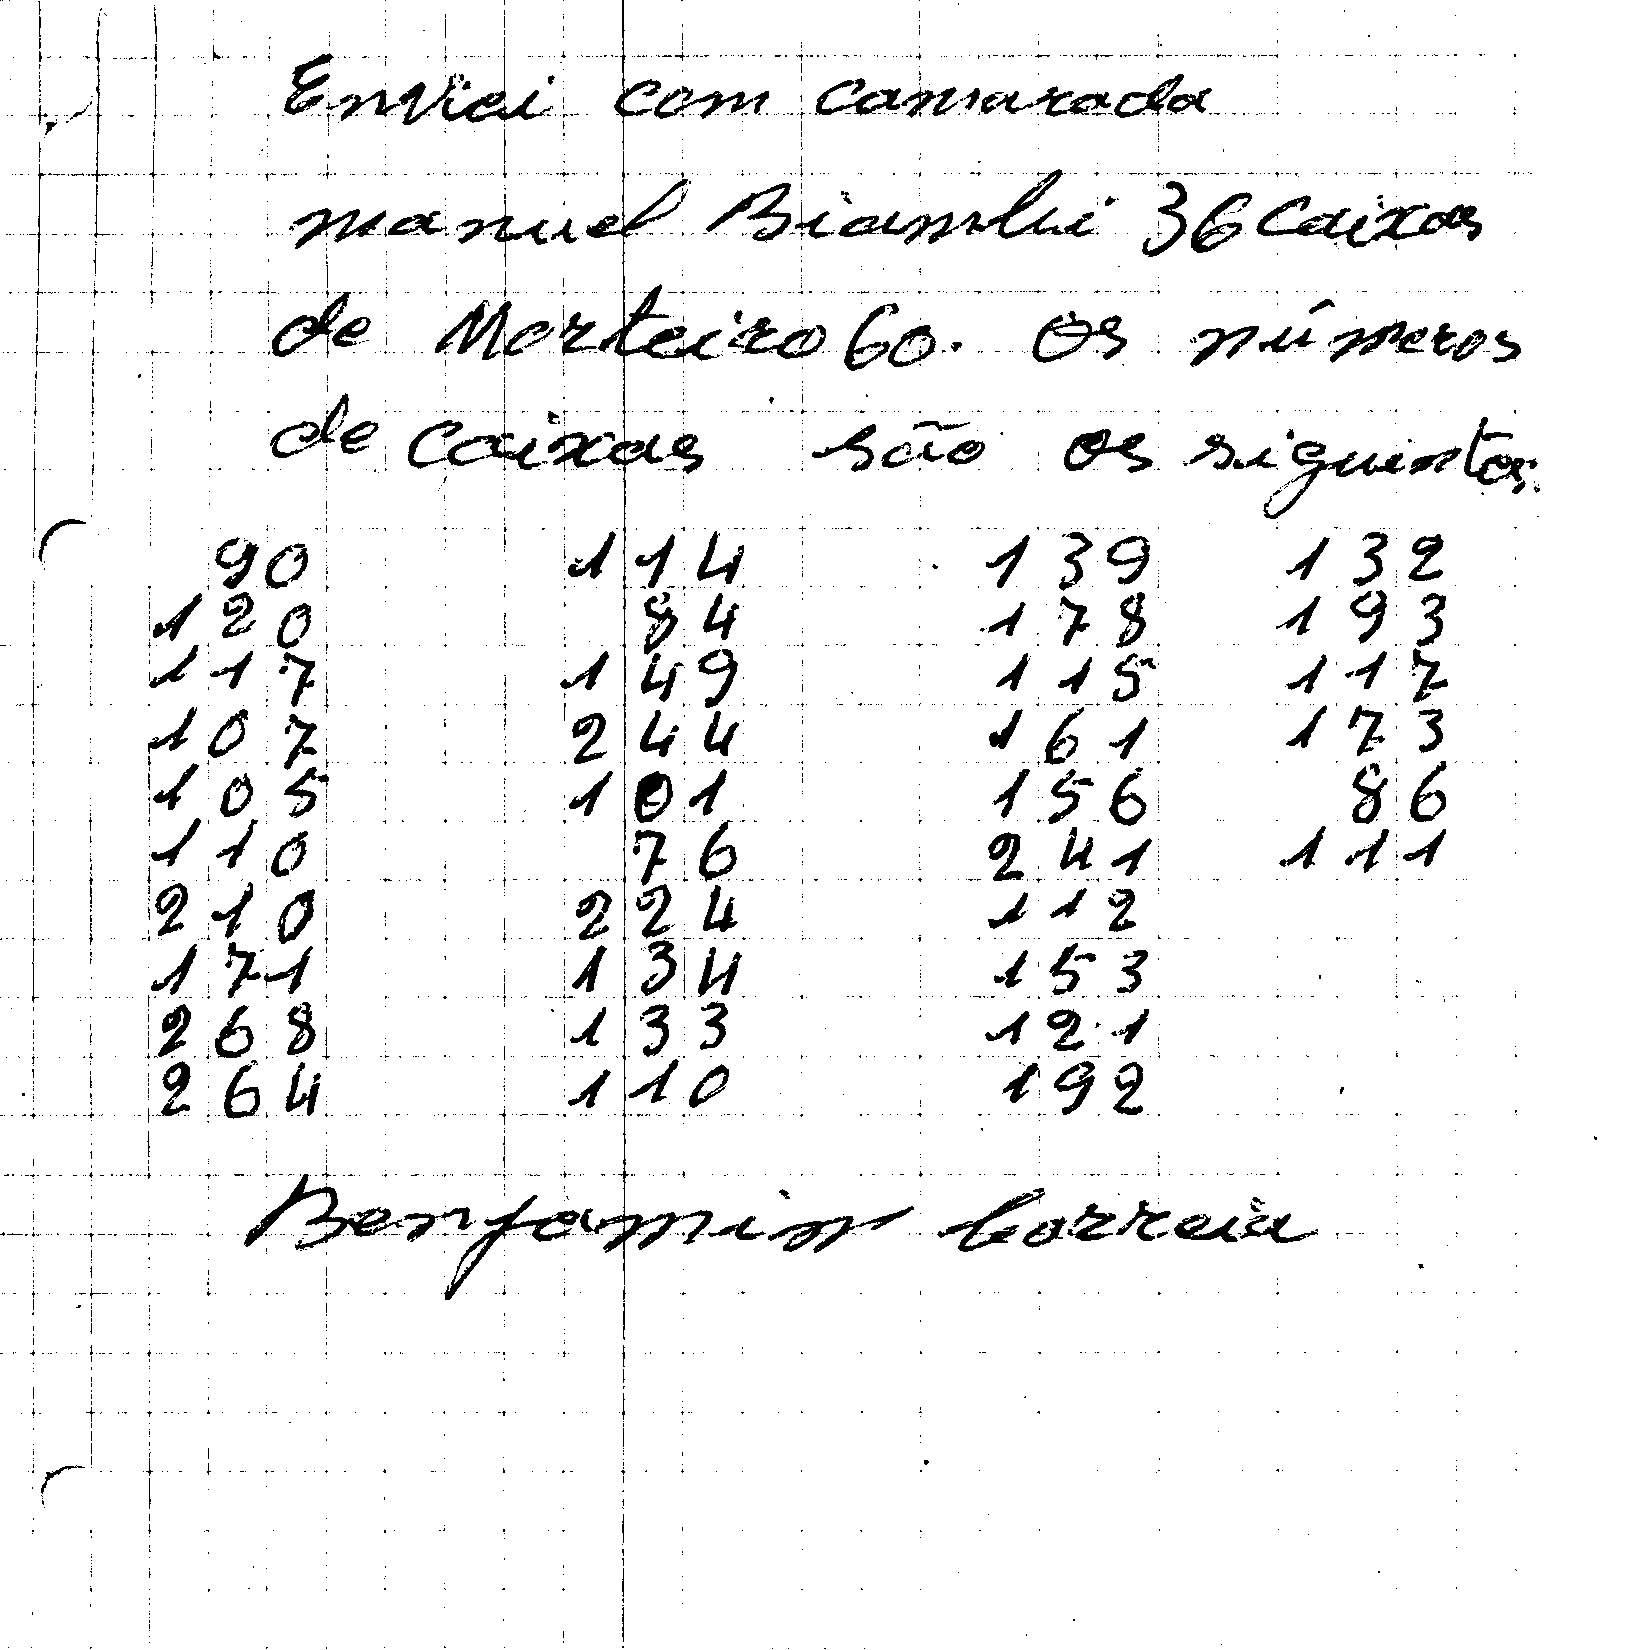 Enviei com camarada
manuel Biambi 36 Caixas
de Morteiro 60. Os números
de Caixas são os siguintes.
90 114 139 132
120 84 178 193
117 149 115 117
107 244 161 173
105 101 156 86
110 76 241 111
210 224 112
171 134 153
268 133 121
264 110 192
Benjamin Correia